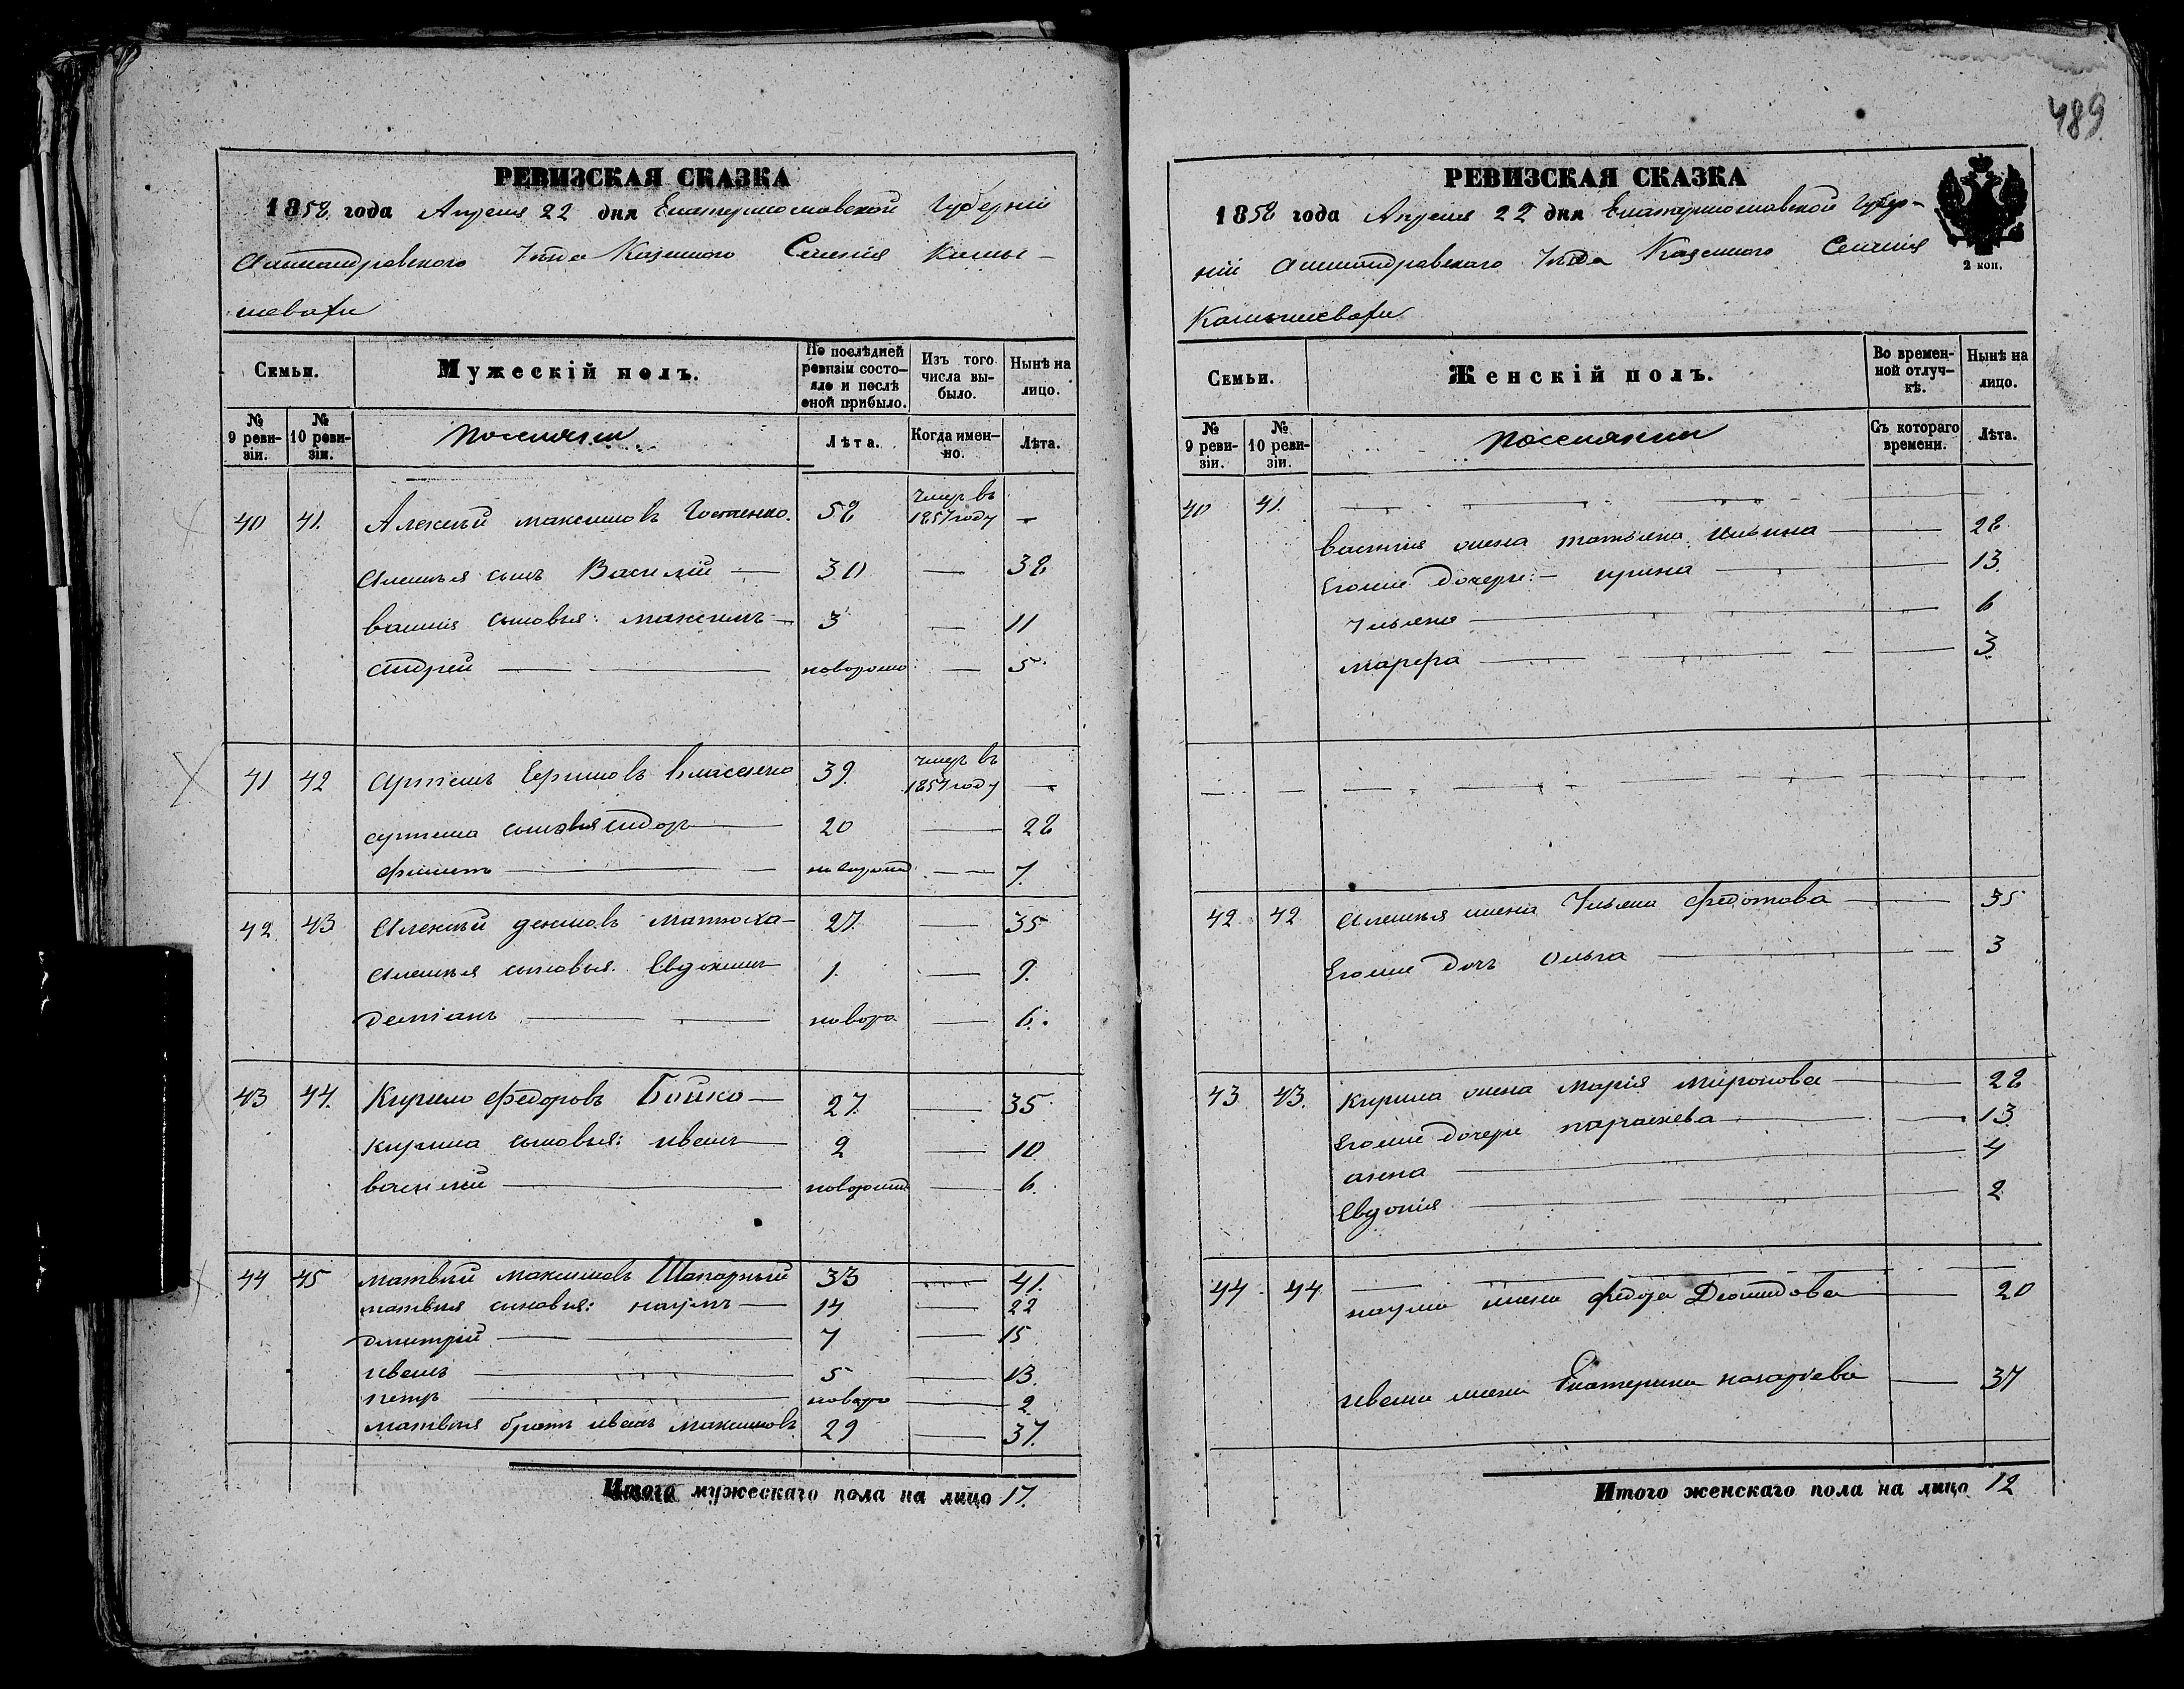 489
РЕВИЗСКАЯ СКАЗКА
1858 года Апреля 22 дня Екатеринославской Губерніи
Александровскаго Уѣзда Казеннаго Селенія Камы-
шевахи
Семьи.
Мужескій полъ.
По послѣдней ревизіи состояло и послѣ оной прибыло.
Изъ того числа выбыло.
Нынѣ на лицо.
№ 9 ревизіи.
№ 10 ревизіи.
поселяне
Лѣта.
Когда именно.
Лѣта.
40 41. Алексѣй максимовъ 58 умер въ 1854 году —
Алексѣя сынъ Василій — 30 — 38
василія сыновья: максимъ — 3 — 11
андрей — новорожд — 5
41 42 артемъ Ефимовъ власенко 39. умер въ 1854 году —
артема сыновья сидоръ — 20 — 28
филипъ — новорожд — 7.
42 43 Алексѣй матюха — 27. — 35
Алексѣя сыновья. Евдокимъ 1. — 9.
деміанъ — новоро — 6.
43 44. Кирило федоровъ Бойко — 27. — 35
кирила сыновья: иванъ — 2 — 10
василій — новорожд — 6.
44 45 матвѣй максимовъ Шапарный 33 — 41.
матвѣя сыновья: наумъ — 14 — 22
дмитрій — 7 — 15
иванъ — 5 — 13.
петръ — новоро — 2
матвѣя братъ иванъ максимовъ 29 — 37.
Итого мужескаго пола на лицо 17.
РЕВИЗСКАЯ СКАЗКА
1858 года Апреля 22 дня Екатеринославской Губер-
ніи Александровскаго Уѣзда Казеннаго Селенія
Камышевахи
2 коп.
Семьи.
Женскій полъ.
Во временной отлучкѣ.
Нынѣ на лицо.
№ 9 ревизіи.
№ 10 ревизіи.
поселянки
Съ котораго времени.
Лѣта.
40 41.
василія жена татьяна ильина — 28
Егоже дочери: — ирина — 13.
Ульяна — 6
марфа — 3
42 42 Алексѣя жена Ульяна федотова — 35
Егоже дочь Ольга — 3
43 43. Кирила жена Марія миронова — 28
Егоже дочери параскева — 13.
анна — 4
Евдокія — 2
44 44
наума жена — 20
ивана жена Екатерина назарьева — 37
Итого женскаго пола на лицо 12